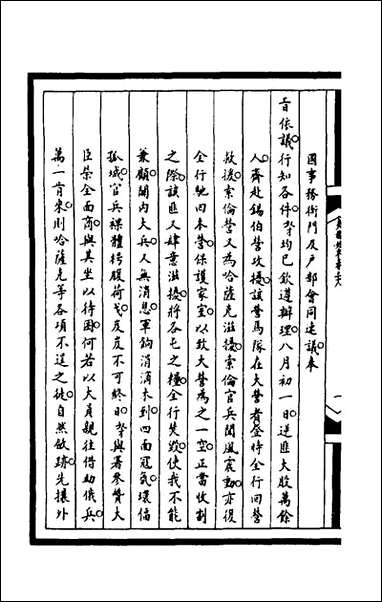 國事務衙門及戶部會同速議奏
旨依議行知各件。等均已欽遵辦理。八月初一日。逆匪大股萬餘
人齊赴錫伯營攻擾。該營馬隊在大營者登時全行回營
救援。索倫營又為哈薩克滋擾。索倫官兵聞風震動。亦復
全行馳回本營保護家室。以致大營為之一空。正當收割
之際。該匪又肆意滋擾。將各屯之糧全行失毀。使我不能
兼顧。關內大兵又無消息。軍餉涓滴未到。四面寇氛環偪
孤城。官兵裸體枵腹荷戈。岌岌不可終日。與署參贊大
臣榮全面商。與其坐以待困。何若以大員親往借助俄兵。
萬一肯來。則哈薩克等各項不逞之徒。自然斂跡。先攘外